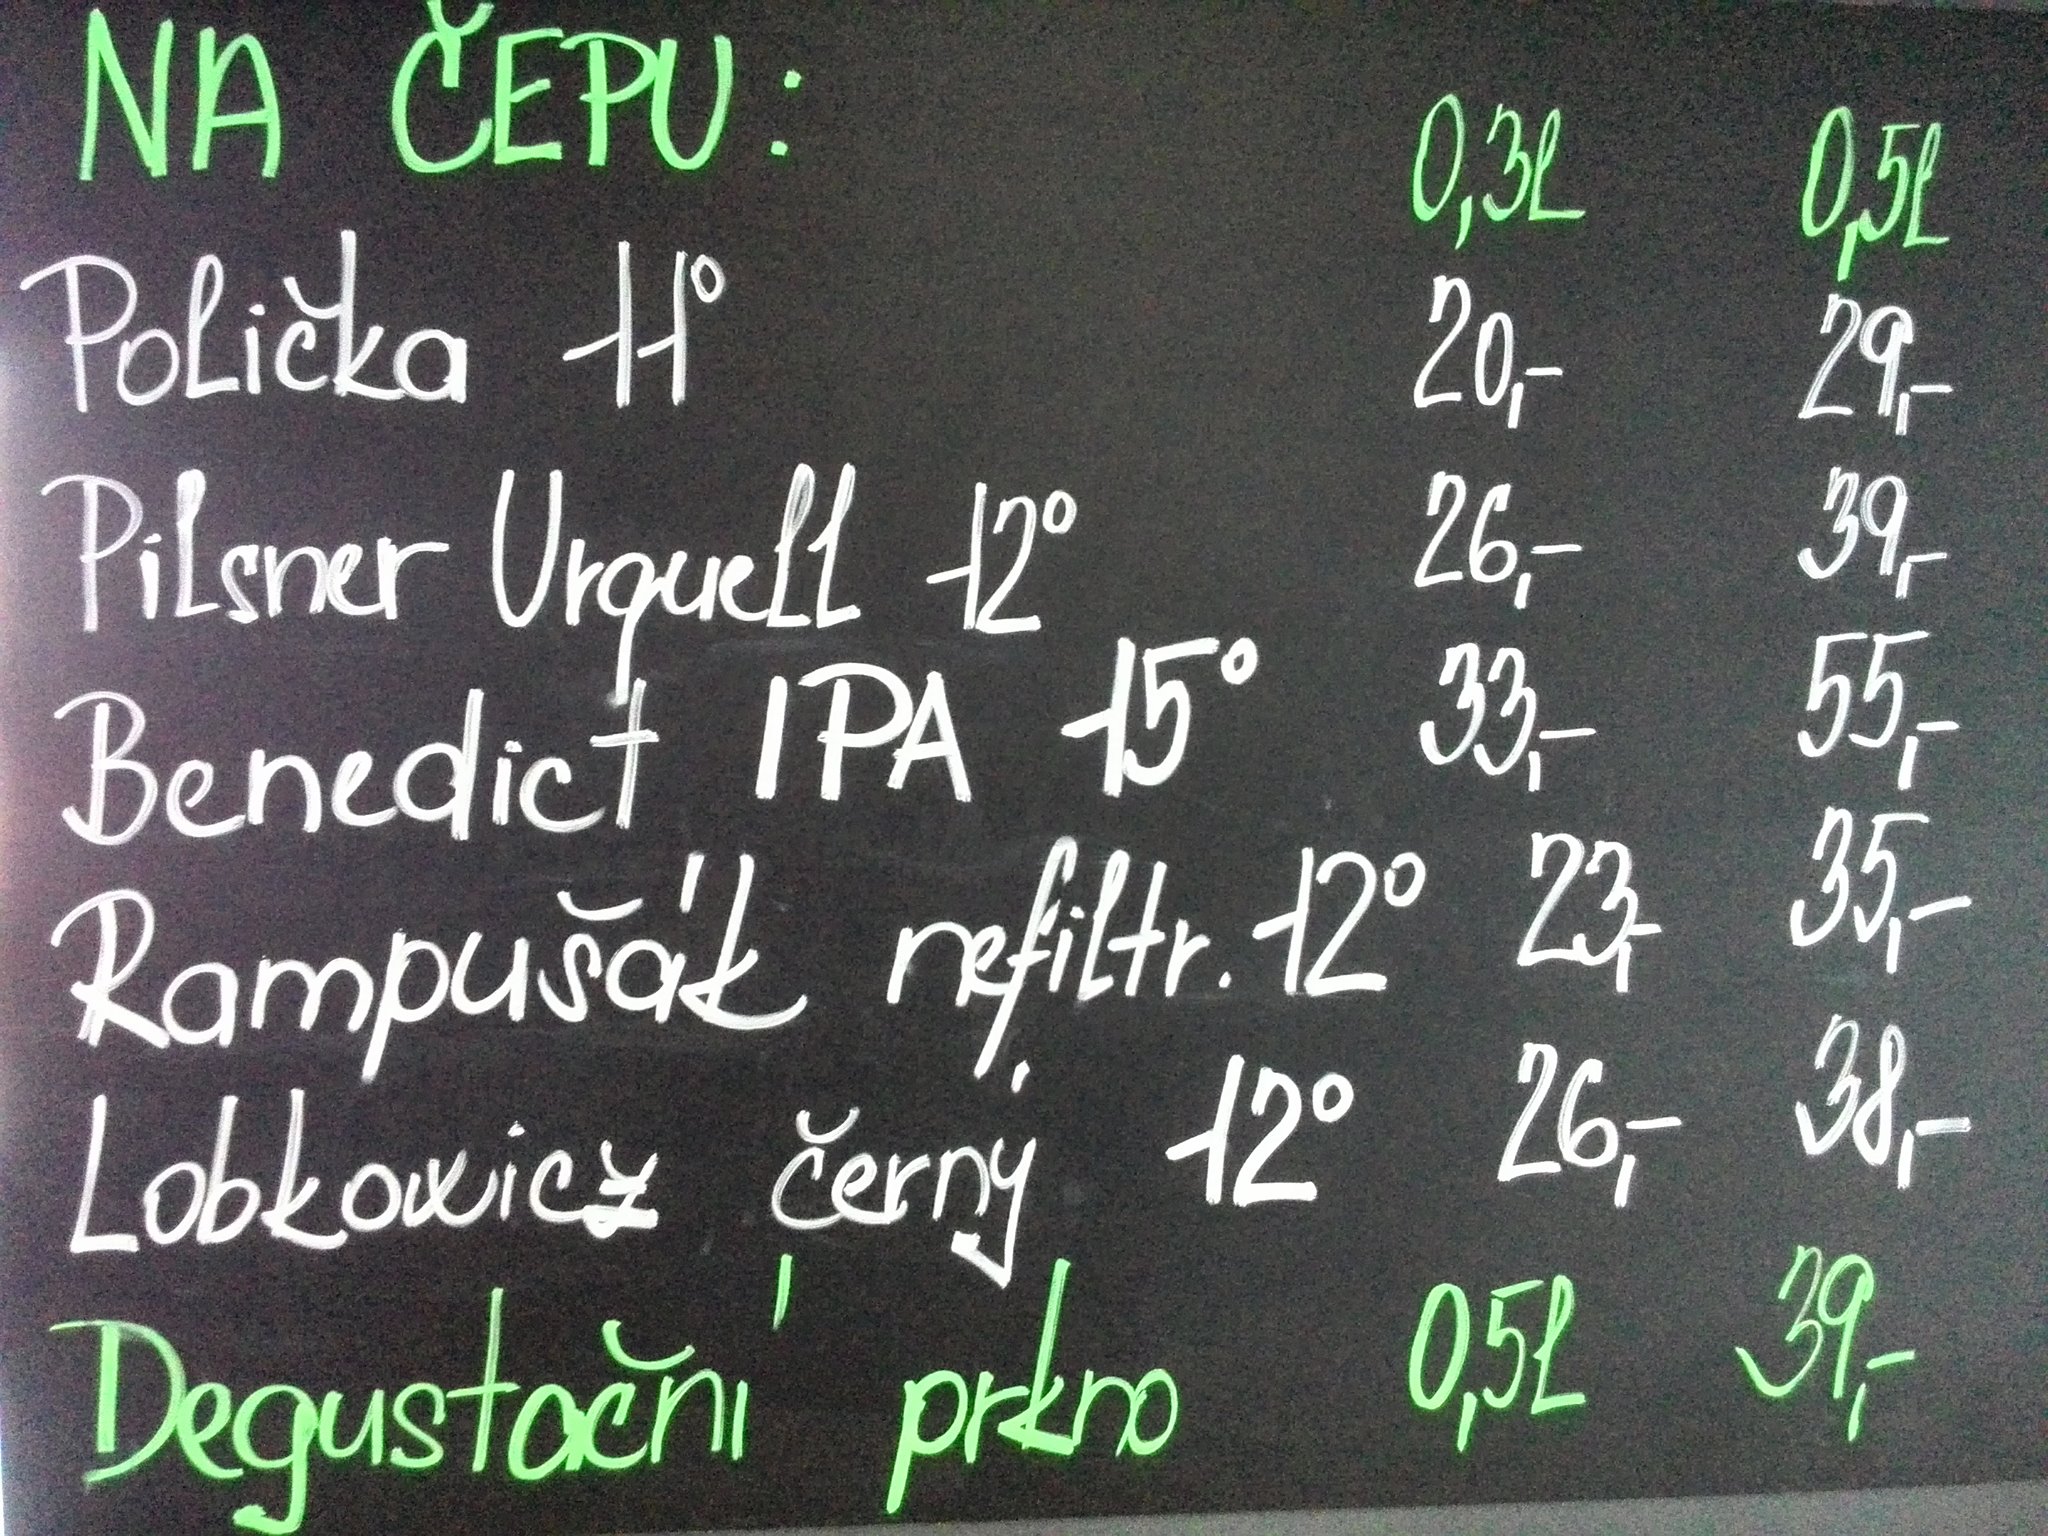 NA ČEPU: 0,3l 0,5l
Polička 11° 20,- 29,-
Pilsner Urquell 12° 26,- 39,-
Benedict IPA 15° 33,- 55,-
Rampušák nefiltr. 12° 23,- 35,-
Lobkowicz černý 12° 26,- 38,-
Degustační prkno 0,5l 39,-